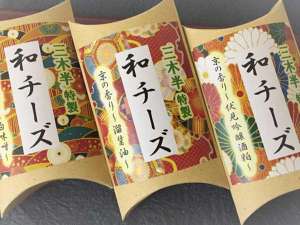 三木半
特製
和チーズ
白味噌〜
三木半
特製
和チーズ
京の香り〜溜醤油〜
三木半
特製
和チーズ
京の香り〜伏見吟醸酒粕〜